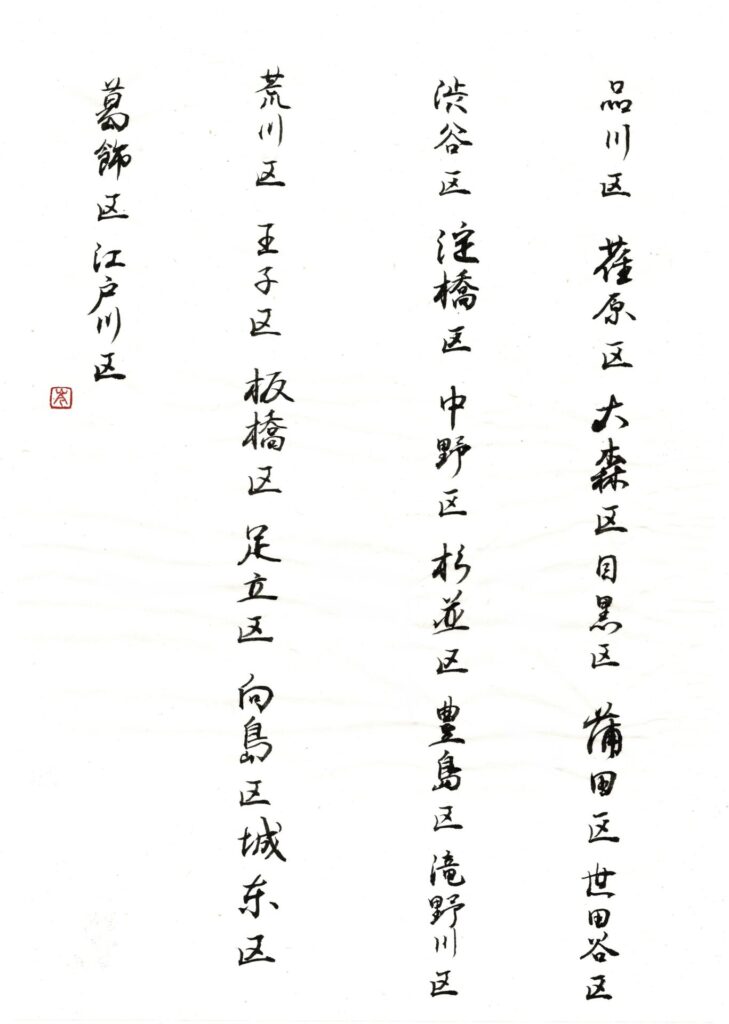 品川区 荏原区 大森区 目黒区 蒲田区 世田谷区
渋谷区 淀橋区 中野区 杉並区 豊島区 滝野川区
荒川区 王子区 板橋区 足立区 向島区 城東区
葛飾区 江戸川区